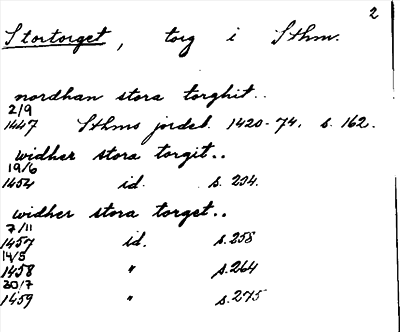 2
Stortorget, torg i Sthm.
nordhan stora torghit..
2/9
1447 Sthms jordeb. 1420-74. s. 162.
widher stora torgit..
19/6
1454 id. s. 234.
widher stora torget..
7/11
1457 id. s. 258
14/5
1458 " s. 264
30/7
1459 " s. 275